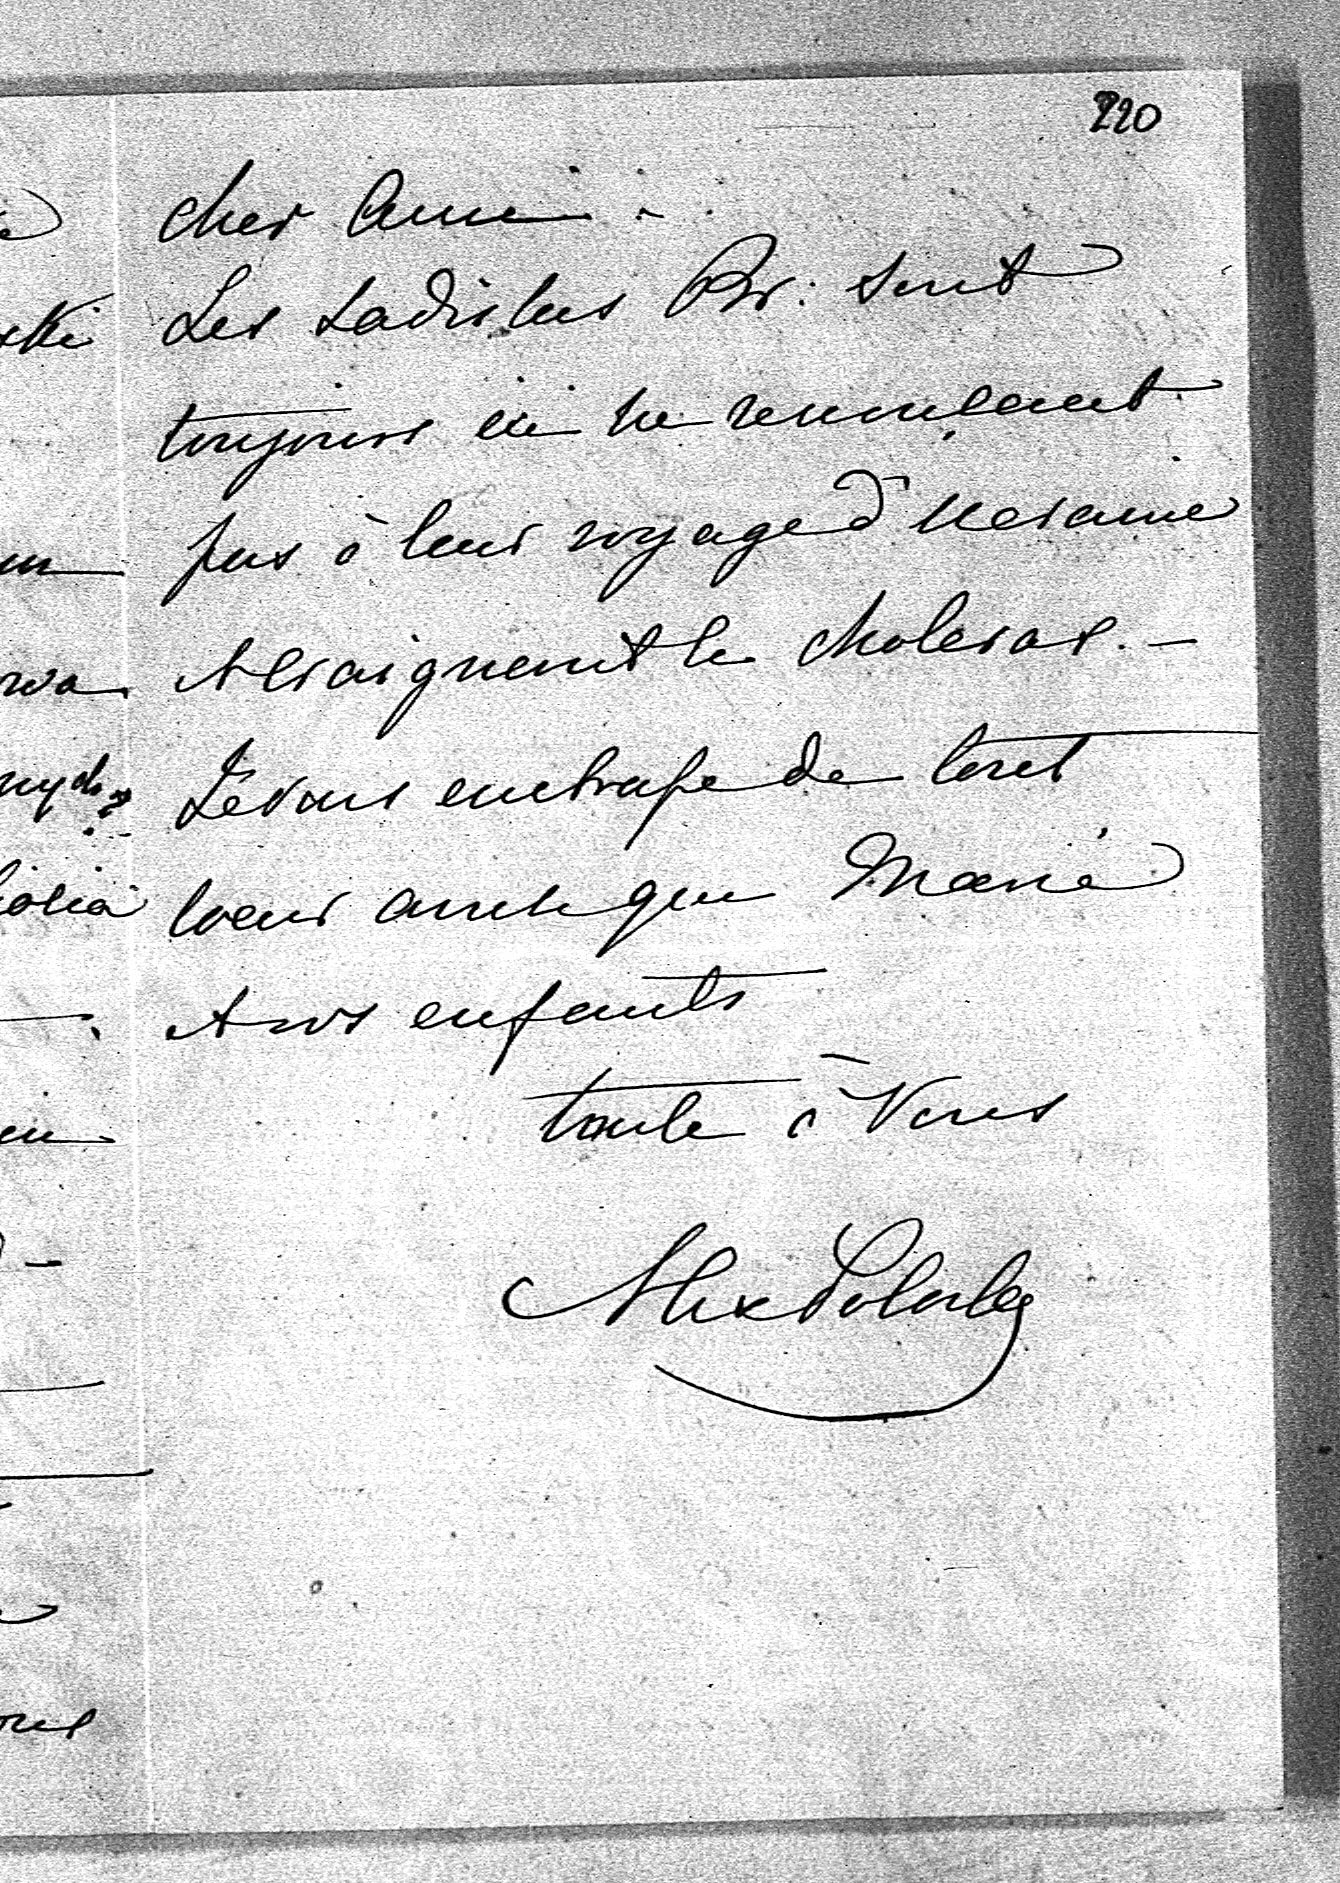 220
cher Ami.
Les Ladislas Br. sont
toujours ici ne renonçant
pas à leur voyage d'Ukraine
& craignent le choleras. –
Je vous embrasse de tout
coeur ainsi que Marie
& vos enfants
toute à Vous
Alix